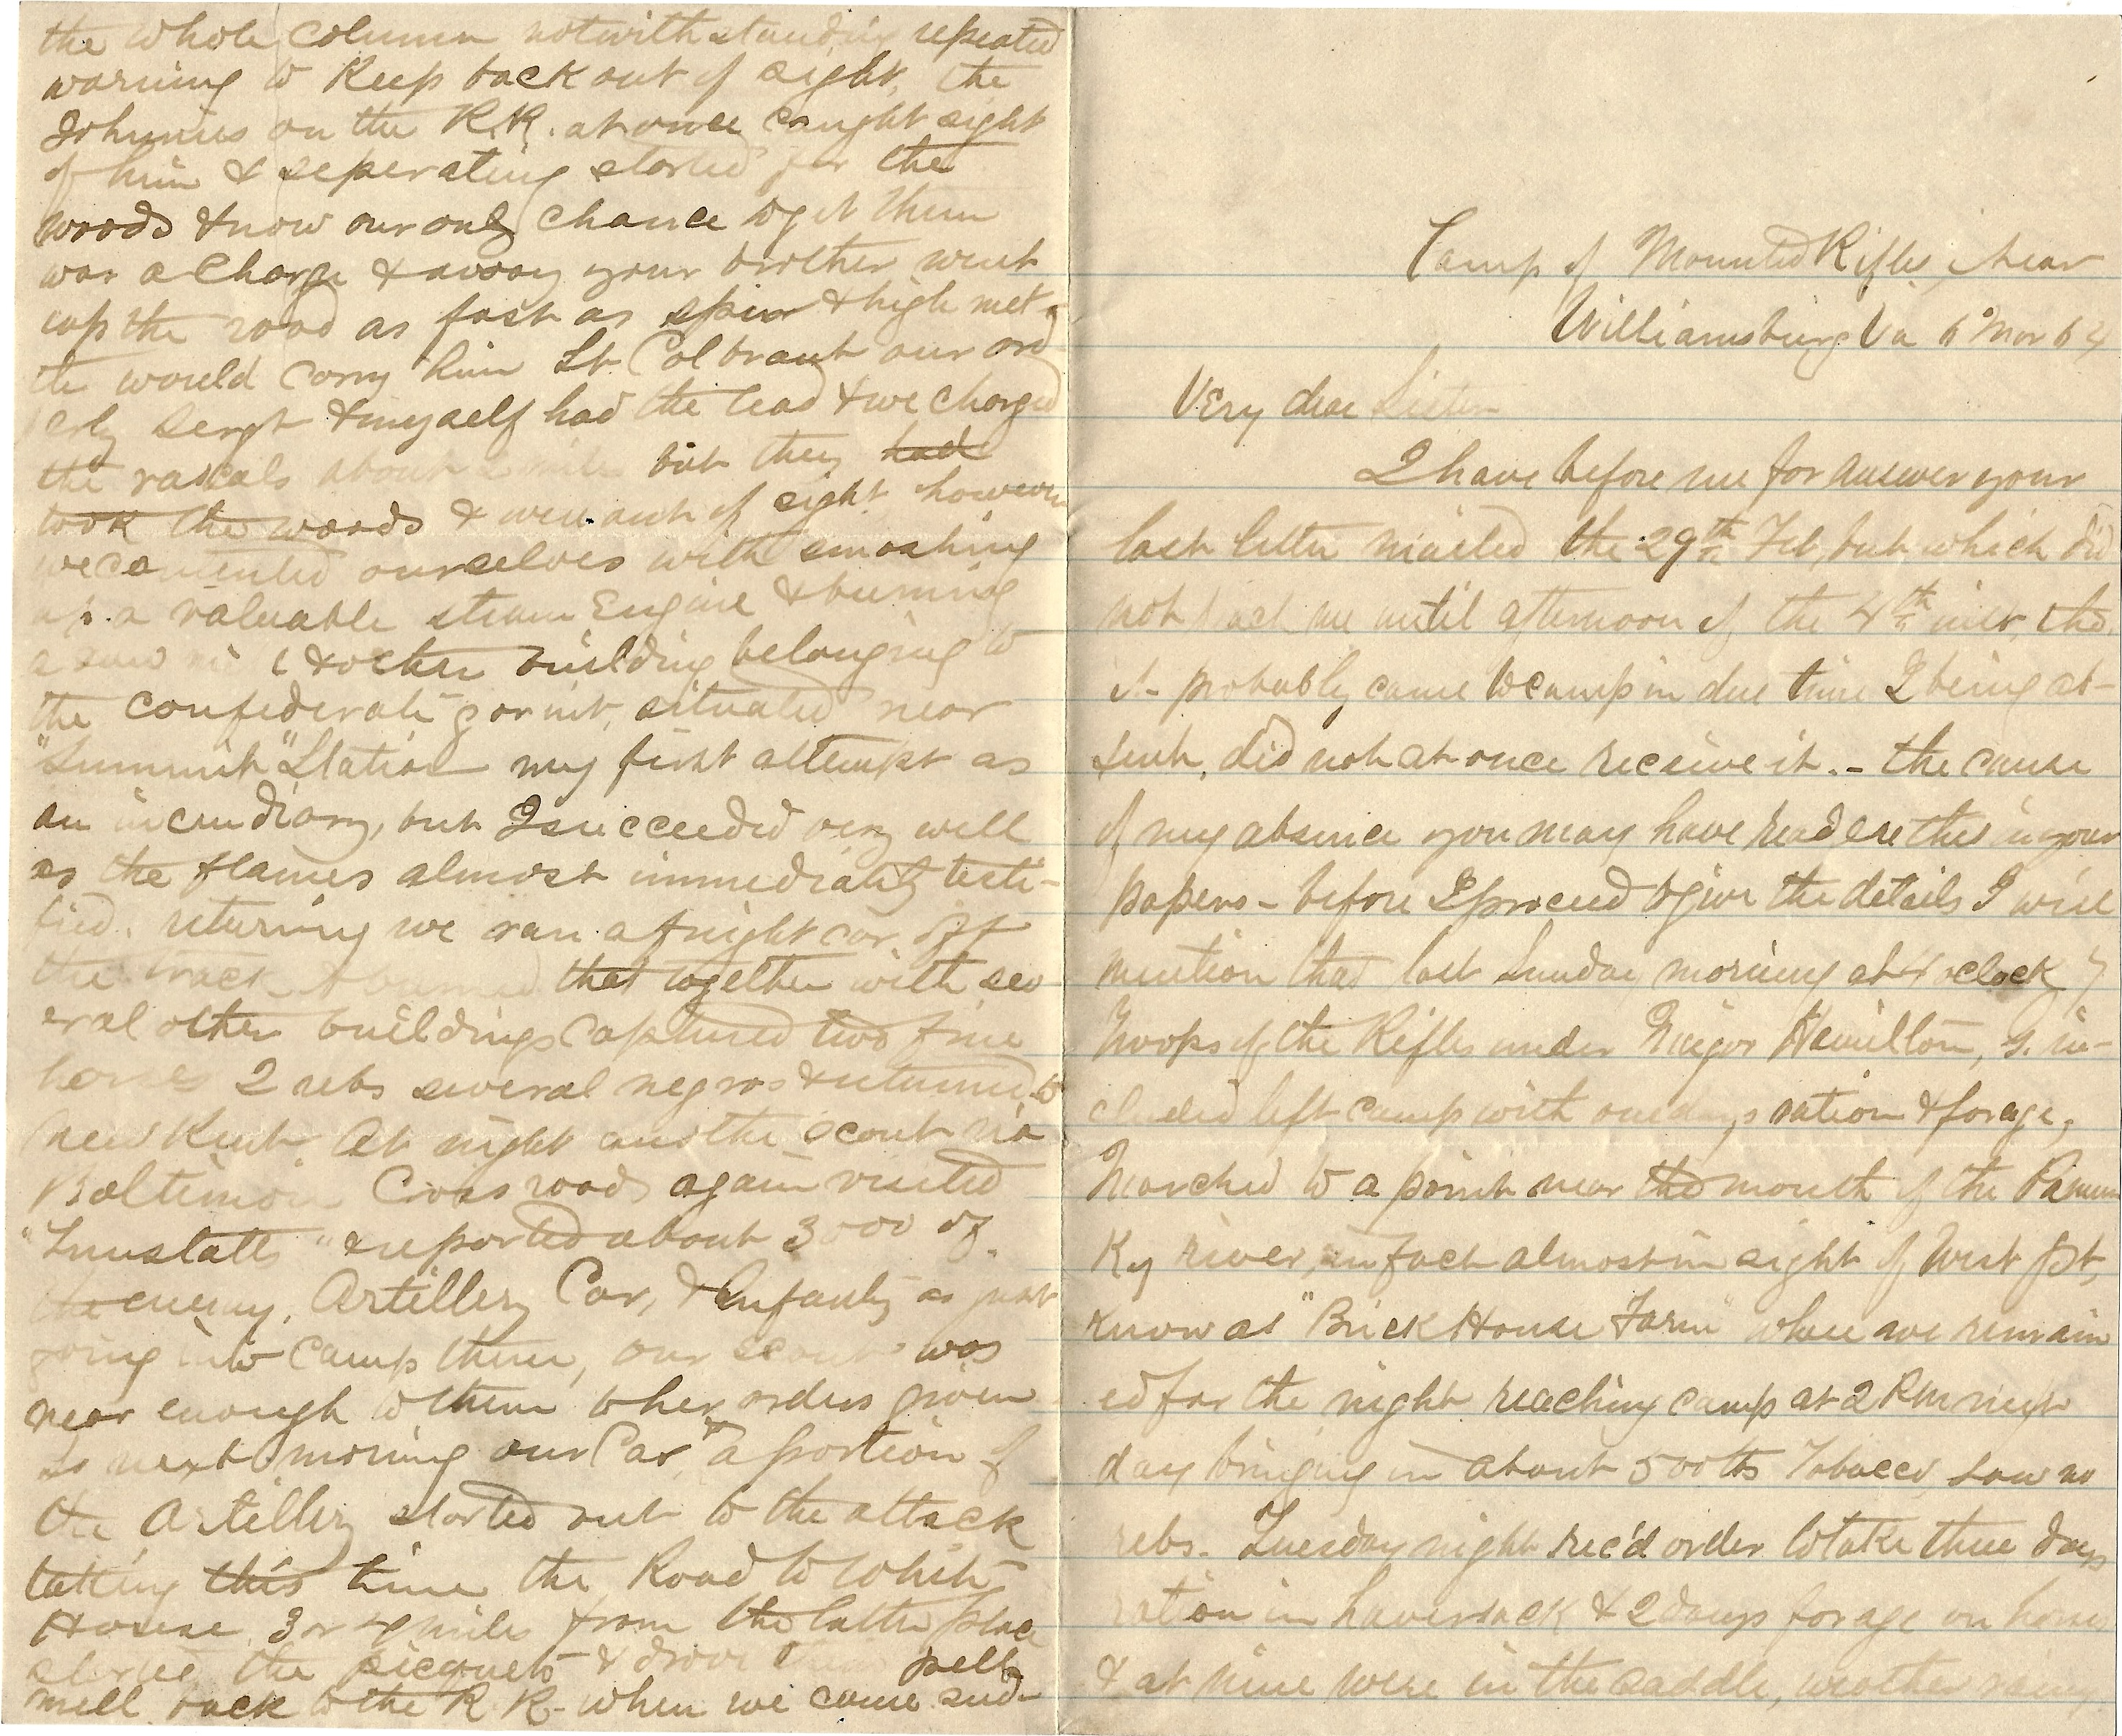 the whole column notwithstanding repeated
warning to keep back out of sight, the
Johnnies on the R.R. at once caught sight
of him & seperating started for the
woods & now our only chance to get them
was a charge & away your brother went
up the road as fast as spur & high met-
tle would carry him Lt Col our ord
erly Sergt & myself had the lead & we charged
the rascals about 2 miles but they had
took the woods & were out of sight however
we contented ourselves with smashing
up a valuable steam Engine & burning
a saw mill & other building belonging to
the confederate govmt, situated near
"Summit" Station my first attempt as
an incendiary, but I succeeded very well
as the flames almost immediately testi-
fied. returning we ran a freight car off
the track & burned that together with sev
eral other buildings captured two fine
horses 2 rebs several negros & returned to
New Kent. At night another scout via
Baltimore Cross roads again visited
"Tunstalls" & reported about 3000 of
the enemy, Artillery Cav, & Infanty as just
going into camp there, our scout was
near enough to them to her orders given
so next morning our Cav, & a portion of
the Artillery started out to the attack
taking this time the Road to White
House 3 or 4 miles from the latter place
started the picquets & drove them pell
mell back to the R R- when we came sud-
Camp of Mounted Rifles, near
Williamsburg Va 6 Mar 64
Very dear Sister
I have before me for answer your
last letter mailed the 29th Feb, but which did
not reach me until afternoon of the 4th inst, tho.
it probably came to camp in due time I being ab-
sent, did not at once receive it. - the cause
of my absence you may have read ere this in your
papers - before I proceed to give the details I will
mention that last Sunday morning at 4 oclock 7
troops of the Rifles under Major Hamilton, G. in-
cluded left camp with one days ration & forage,
Marched to a point near the mouth of the Pamun
Ky river, in fact almost in sight of West Pt,
know as "Brick House Farm" where we remain
ed for the night reaching camp at 2 P.M next
day bringing in about 500 lbs Tobacco, saw no
rebs. Tuesday night rec'd order to take three days
ration in haversack & 2 days forage on horse
& at nine were in the saddle, weather rainy